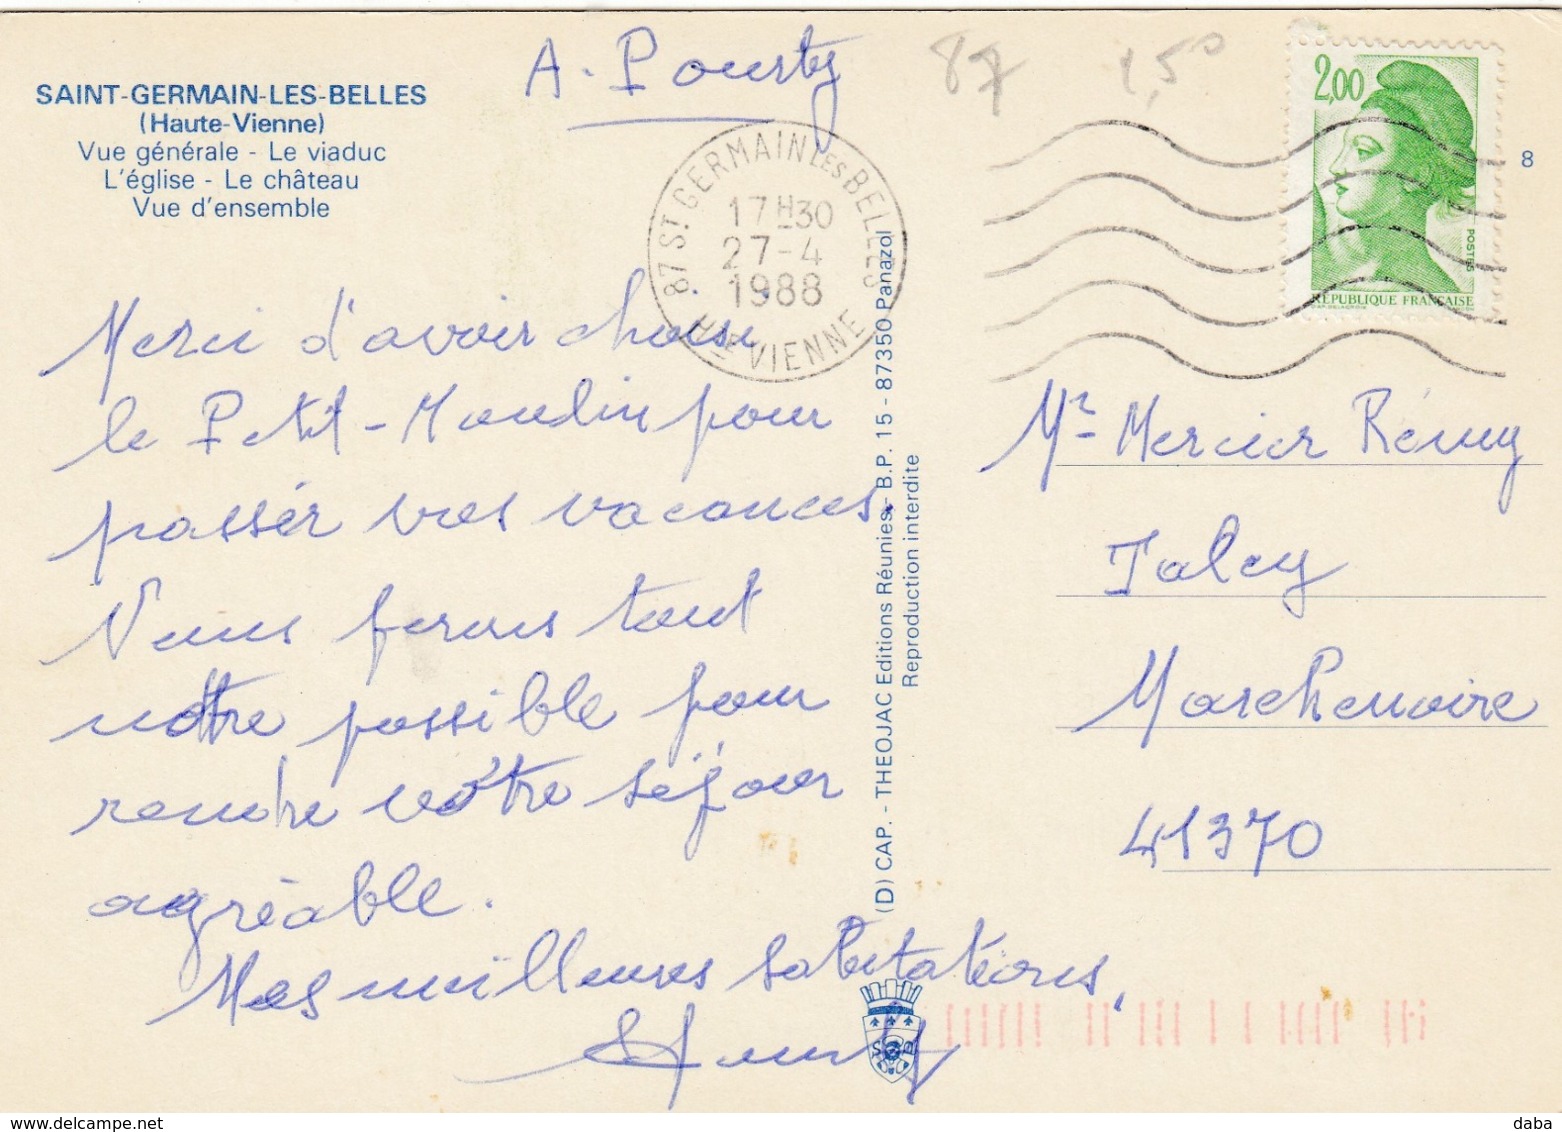 A. Pousty
87 1,50
SAINT-GERMAIN-LES-BELLES
(Haute-Vienne)
Vue générale - Le viaduc
L'église - Le château
Vue d'ensemble
2,00
POSTES
RÉPUBLIQUE FRANÇAISE
8
87 ST GERMAIN LES BELLES
17H30
27-4
1988
HTE VIENNE
Merci d'avoir choisi
le Petit-Moulin pour
passér vos vacances.
Nous ferons tout
notre possible pour
rendre votre séjour
agréable.
Mes meilleures salutations.
(D) CAP. - THEOJAC Editions Réunies - B.P. 15 - 87350 Panazol
Reproduction interdite
Mr Mercier Rémy
Talcy
Marchenoire
41370
delcampe.net
daba